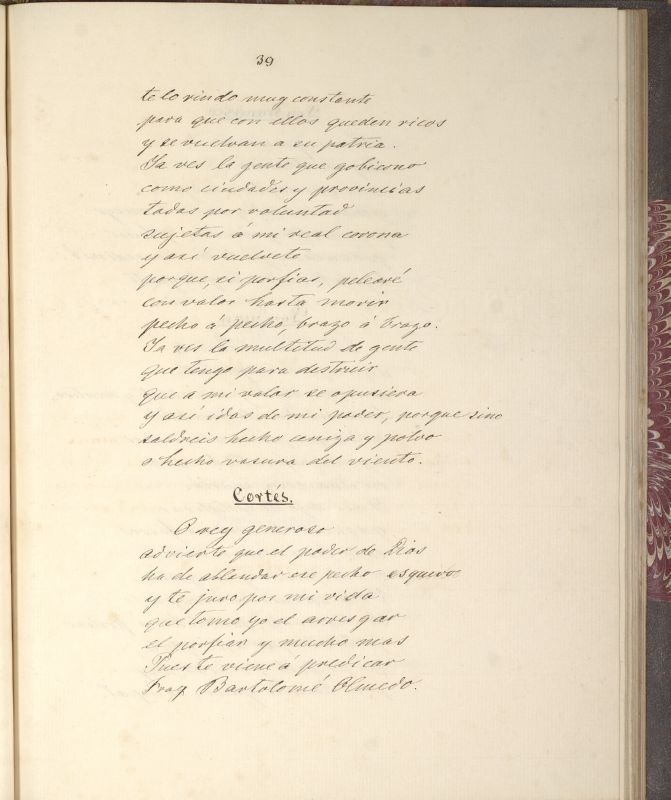 39
te lo rindo muy constante
para que con ellos queden ricos
y se vuelvan a su patria.
Ya ves la gente que gobierno
como ciudades y provincias
todas por voluntad
sujetas á mi real corona
y así vuelvete
porque, si porfias, pelearé
con valor hasta morir
pecho á pecho, brazo á brazo.
Ya ves la multitud de gente
que tengo para destruir
que a mi valor se opusiera
y así idos de mi poder, porque sino
saldreis hecho ceniza y polvo
o hecho vasura del viento.
Cortés.
O rey generoso
advierte que el poder de Dios
ha de ablandar ese pecho esquero
y te juro por mi vida
que tomo yo el arresgar
el porfiar y mucho mas
Pues te viene á predicar
Fray Bartolomé Olmedo.